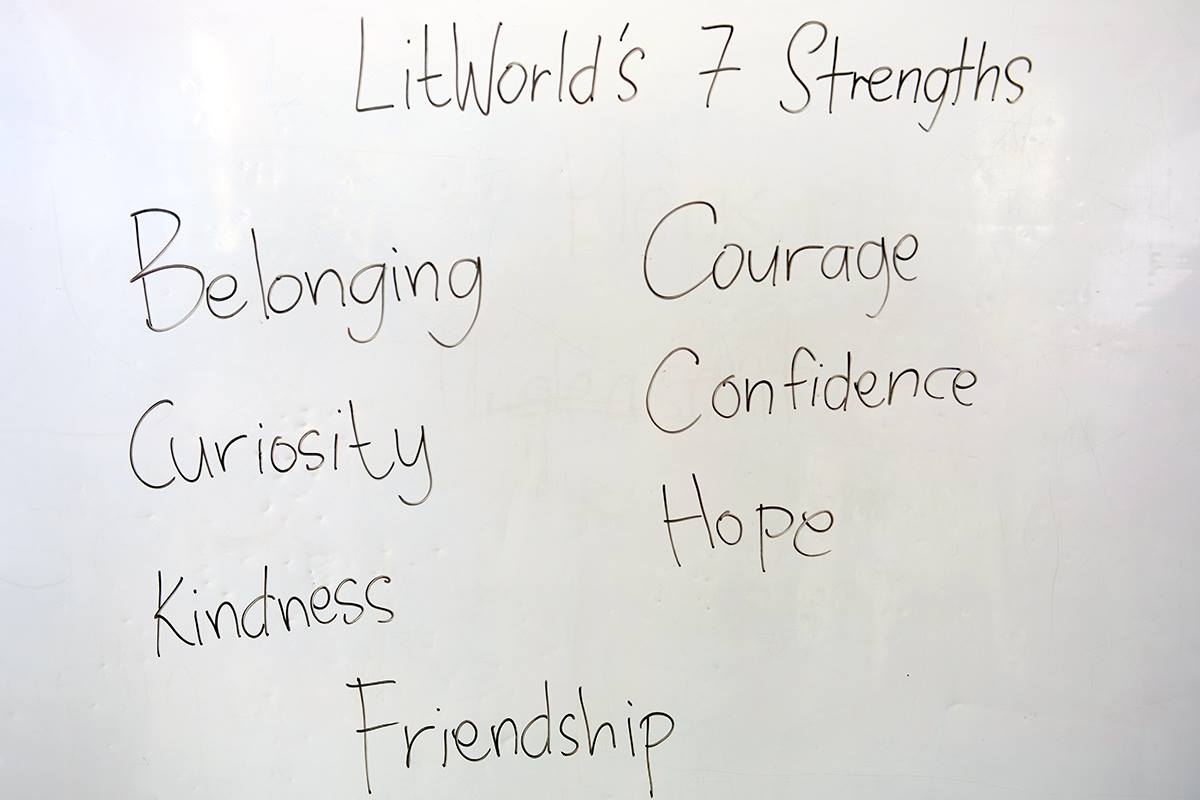 LitWorld's 7 Strengths
Belonging
Curiosity
Kindness
Courage
Confidence
Hope
Friendship